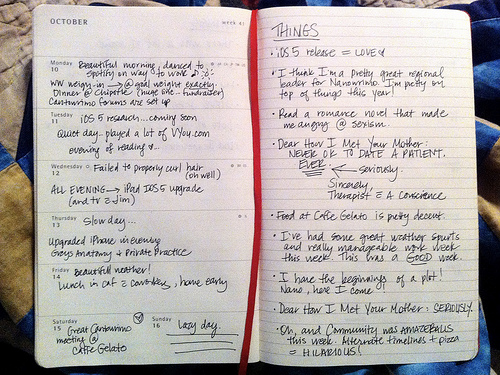 OCTOBER
week 41
Monday
10
Beautiful morning, danced to
Spotify on way to work
WW weigh-in → @ goal weight exactly.
Dinner @ Chipotle (huge one - fundraiser)
Forums are set up
Tuesday
11
iOS 5 research...coming soon
Quiet day. played a lot of VYou.com
evening of reading
Wednesday
12
Failed to properly curl hair
(oh well)
ALL EVENING → iPad iOS5 upgrade
(and tv = Jim)
Thursday
13
Slow day...
Upgraded iPhone in evening
Greys Anatomy + Private Practice
Friday
14
Beautiful weather!
Lunch in caf = coworkers, home early
Saturday
15
Great
meeting @
Cafe Gelato
Sunday
16
lazy day.
THINGS
• iOS 5 release = LOVE
• I think I'm a pretty great regional
leader for Nanowrimo. I'm pretty on
top of things this year!
• Read a romance novel that made
me angry @ sexism.
• Dear How I Met Your Mother:
NEVER OK TO DATE A PATIENT.
EVER. ← seriously.
Sincerely,
Therapist = A Conscience
• Food at Cafe Gelato is pretty decent.
• I've had some great weather spurts
and really manageable work week
this week. This was a GOOD week.
• I have the beginnings of a plot!
Nano, here I come!
• Dear How I Met Your Mother: SERIOUSLY.
• Oh, and Community was AMAZEBALLS
this week. Alternate timelines + pizza
= HILARIOUS!